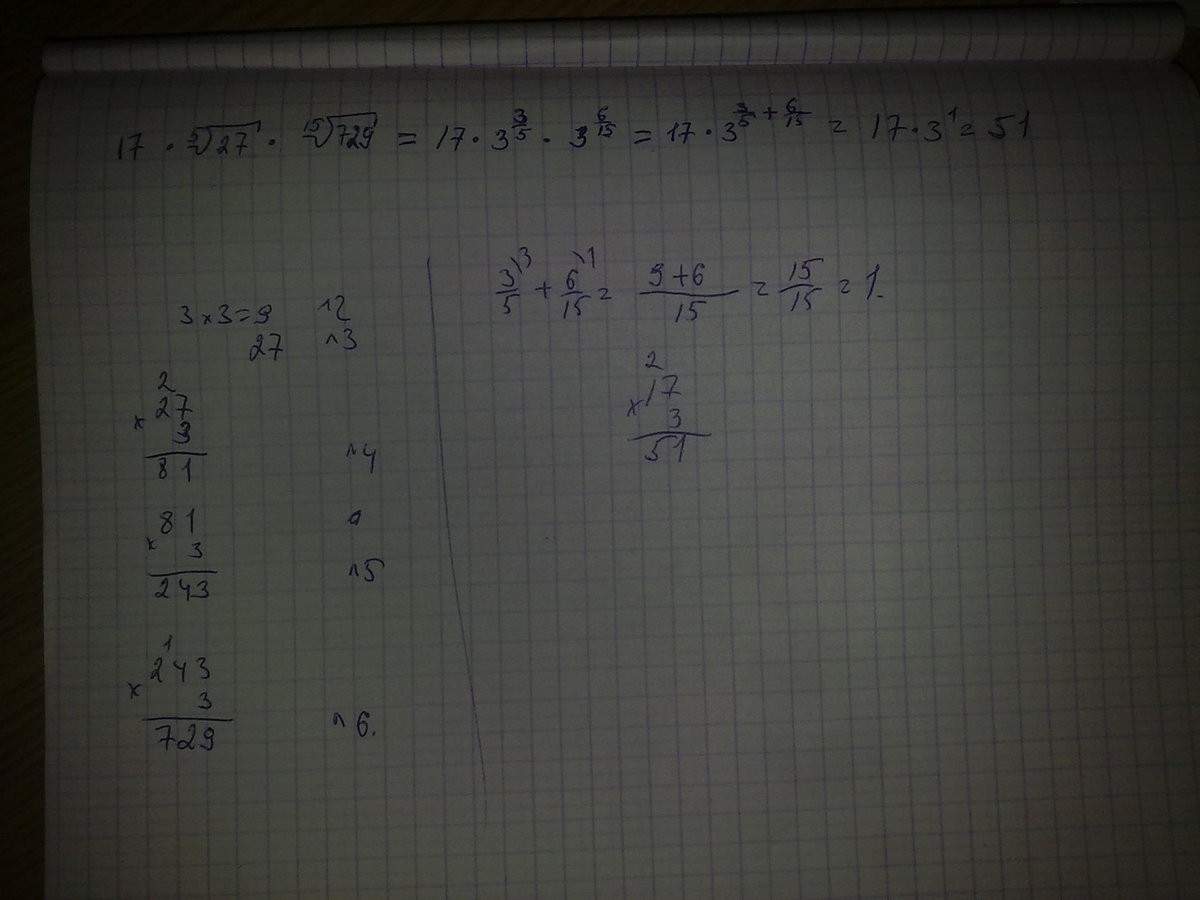 17 · ⁵√27 · ¹⁵√729 = 17 · 3^(3/5) · 3^(6/15) = 17 · 3^(3/5 + 6/15) = 17 · 3^1 = 51
3 × 3 = 9 ^2
27 ^3
2
27
× 3
81 ^4
81
× 3
243 ^5
1
243
× 3
729 ^6.
3/5 \3 + 6/15 \1 = (9+6)/15 = 15/15 = 1.
2
× 17
3
51